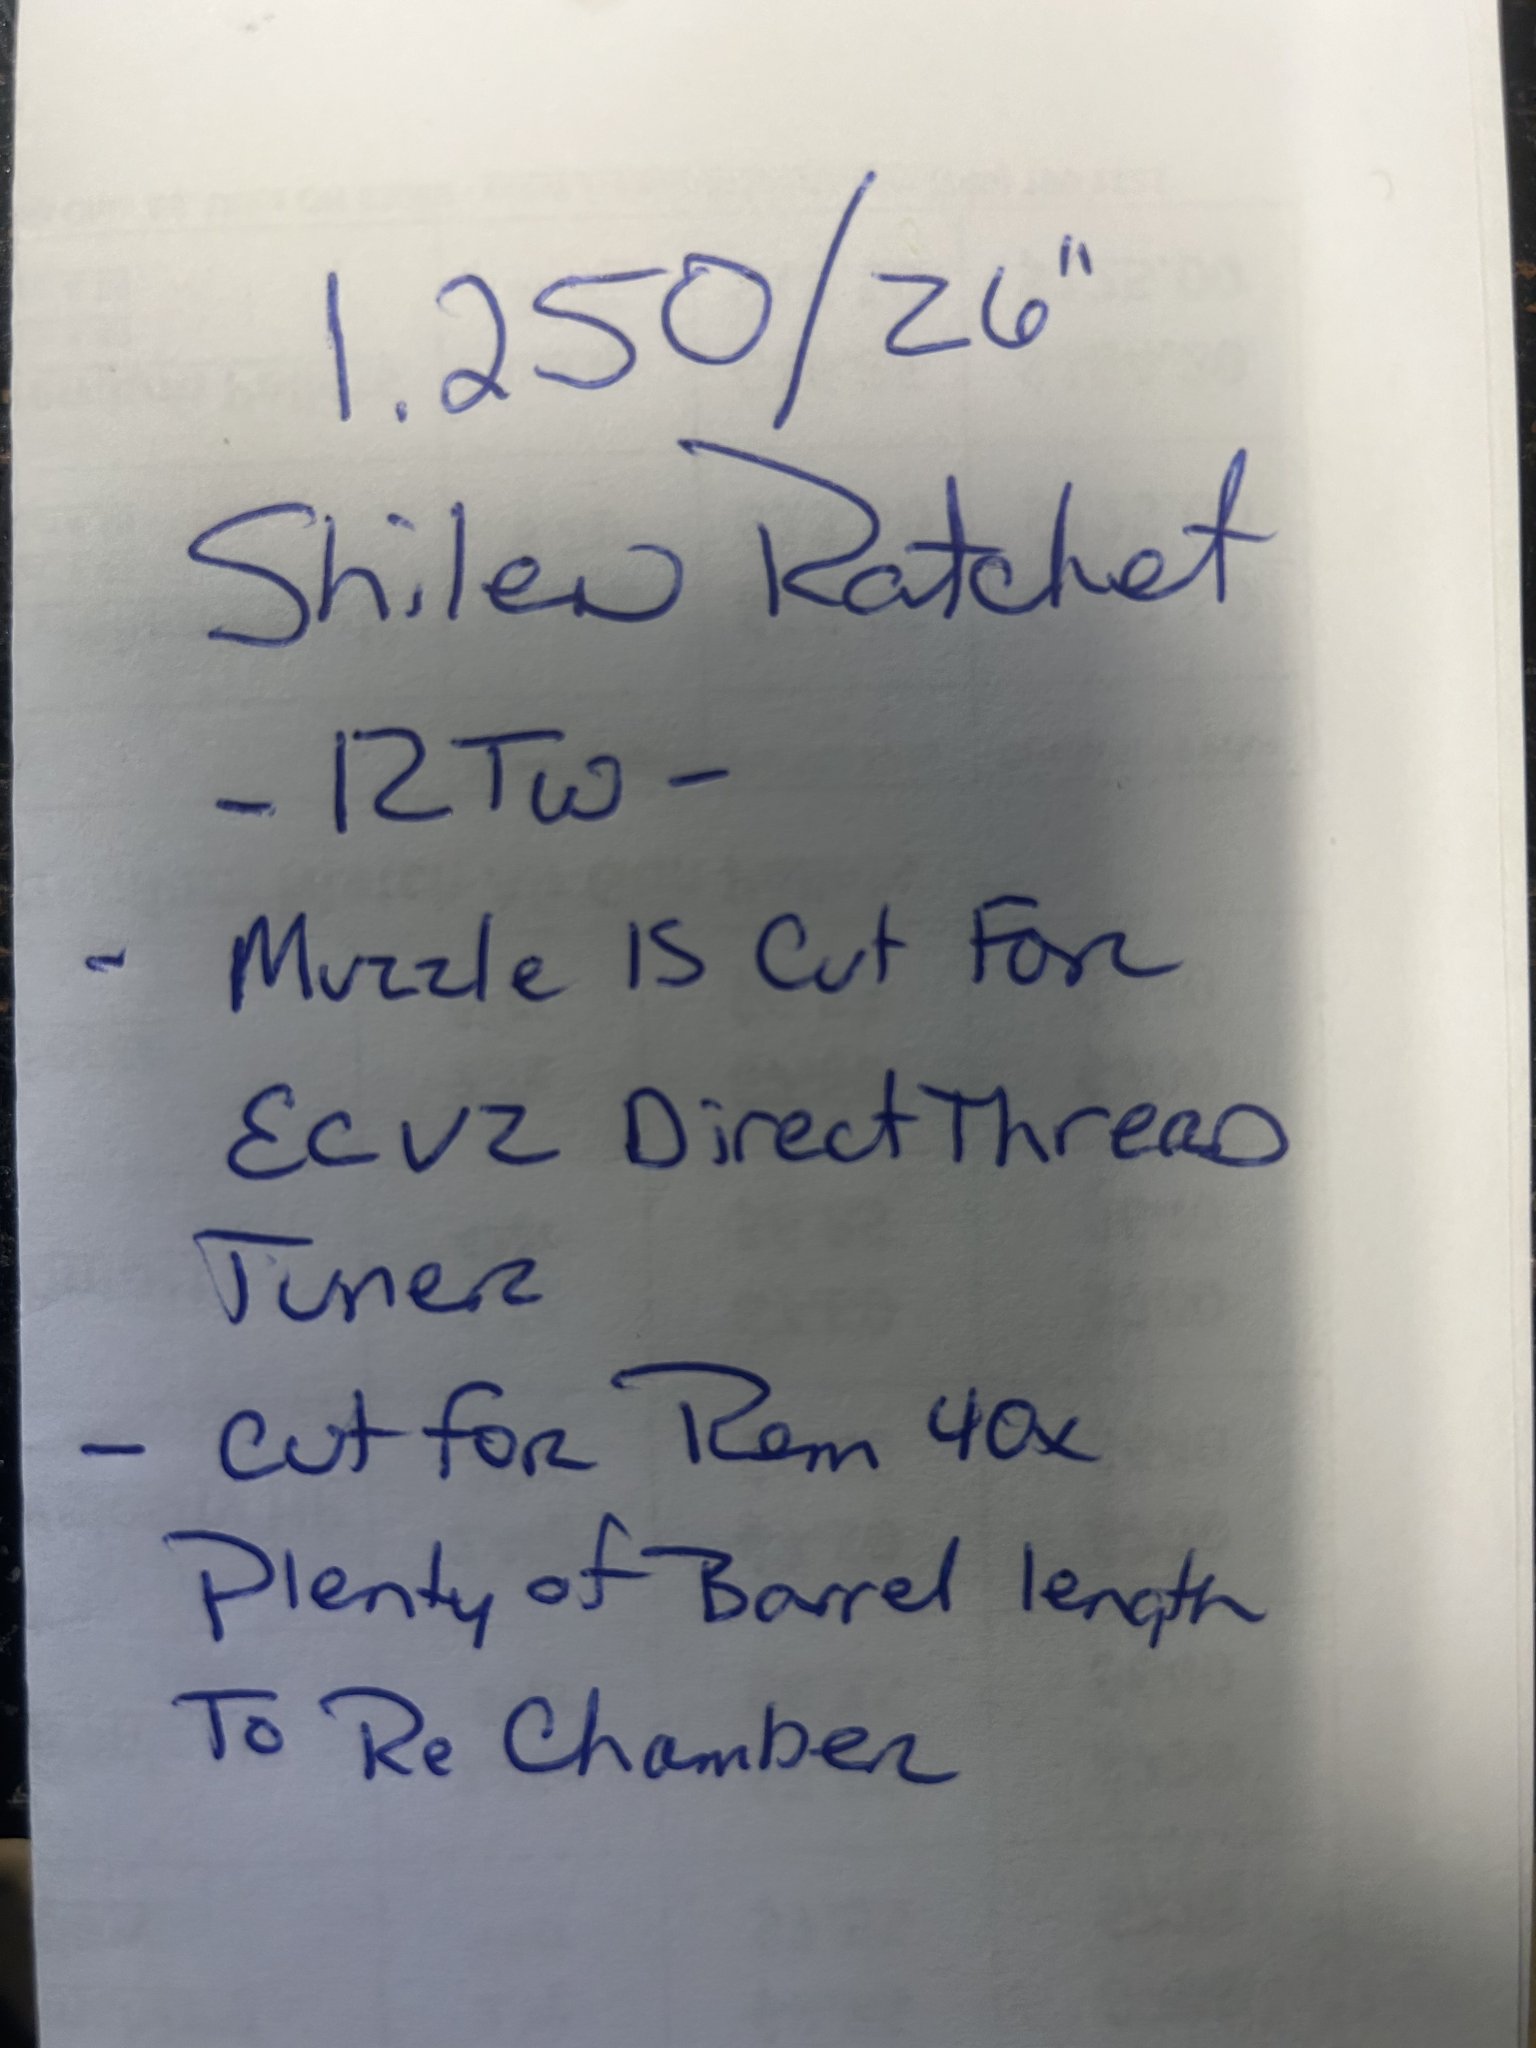 1.250/26"
Shilen Ratchet
- 12 Tw -
- Muzzle is Cut For
EC V2 Direct Thread
Tuner
- Cut for Rem 40x
Plenty of Barrel length
To Re Chamber